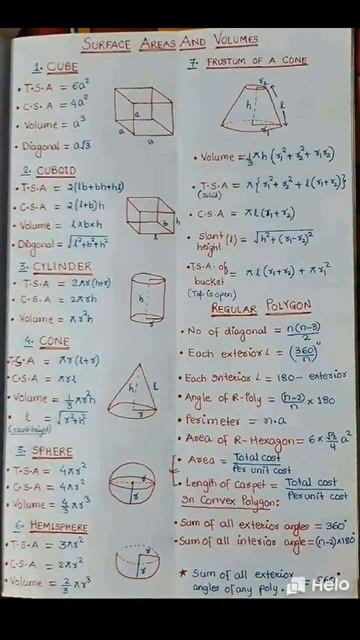 SURFACE AREAS AND VOLUMES
1. CUBE
• T.S.A = 6a²
• C.S.A = 4a²
• Volume = a³
• Diagonal = a√3
a
a
a
2. CUBOID
• T.S.A = 2(lb+bh+hl)
• C.S.A = 2(l+b)h
• Volume = l×b×h
• Diagonal = √l²+b²+h²
h
b
l
3. CYLINDER
• T.S.A = 2πr(h+r)
• C.S.A = 2πrh
• Volume = πr²h
h
r
4. CONE
• T.S.A = πr(l+r)
• C.S.A = πrl
• Volume = 1/3 πr²h
• l = √r²+h²
(slant height)
h
l
r
5. SPHERE
• T.S.A = 4πr²
• C.S.A = 4πr²
• Volume = 4/3 πr³
r
6. HEMISPHERE
• T.S.A = 3πr²
• C.S.A = 2πr²
• Volume = 2/3 πr³
r
r
7. FRUSTUM OF A CONE
r₂
h
l
r₁
• Volume = 1/3 πh(r₁²+r₂²+r₁r₂)
• T.S.A = π{r₁²+r₂²+l(r₁+r₂)}
(solid)
• C.S.A = πl(r₁+r₂)
• Slant height (l) = √h²+(r₁-r₂)²
• T.S.A of bucket = πl(r₁+r₂)+πr₁²
(Top is open)
REGULAR POLYGON
• No of diagonal = n(n-3)/2
• Each exterior ∠ = (360/n)°
• Each interior ∠ = 180 - exterior
• Angle of R-Poly = (n-2)/n × 180
• Perimeter = n.a
• Area of R-Hexagon = 6 × √3/4 a²
• Area = Total cost / Per unit cost
• Length of Carpet = Total cost / Per unit cost
In Convex Polygon:
• Sum of all exterior angles = 360°
• Sum of all interior angle = (n-2)×180°
★ Sum of all exterior
angles of any poly. = 360°
Helo